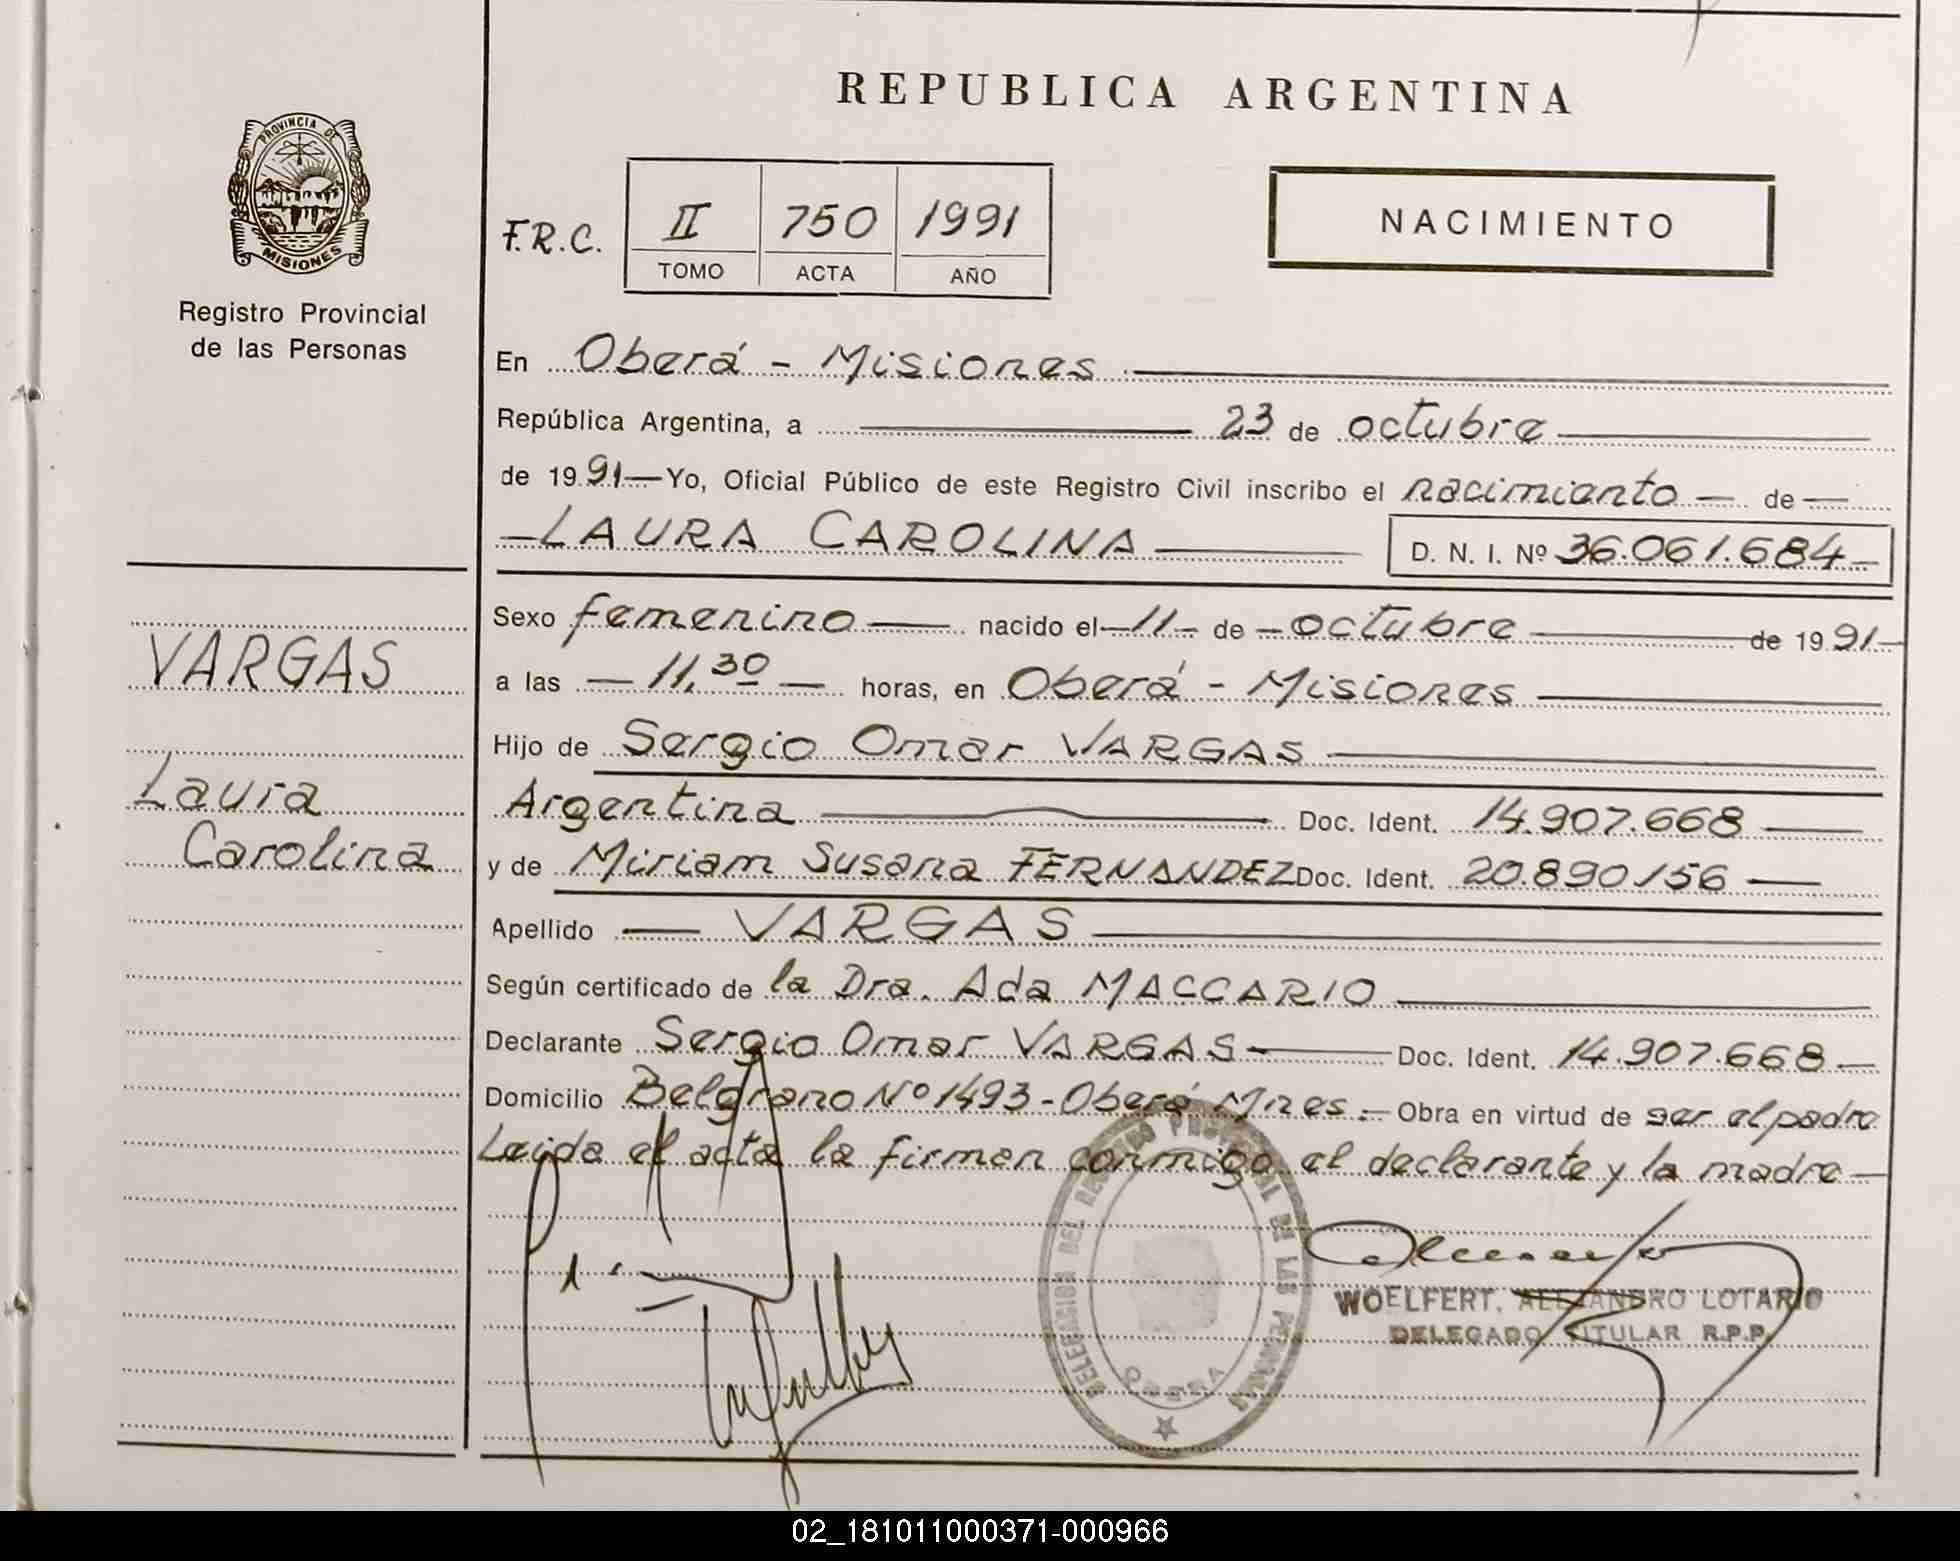 REPUBLICA ARGENTINA
PROVINCIA DE
MISIONES
Registro Provincial
de las Personas
F.R.C.
II 750 1991
TOMO ACTA AÑO
NACIMIENTO
En Oberá - Misiones
República Argentina, a 23 de octubre
de 1991 Yo, Oficial Público de este Registro Civil inscribo el nacimiento de
LAURA CAROLINA D. N. I. Nº 36.061.684
VARGAS
Laura
Carolina
Sexo femenino nacido el 11 de octubre de 1991
a las 11,30 horas, en Oberá - Misiones
Hijo de Sergio Omar VARGAS
Argentina Doc. Ident. 14.907.668
y de Miriam Susana FERNANDEZ Doc. Ident. 20.890.156
Apellido VARGAS
Según certificado de la Dra. Ada MACCARIO
Declarante Sergio Omar VARGAS Doc. Ident. 14.907.668
Domicilio Belgrano Nº 1493 - Oberá Mnes. Obra en virtud de ser el padre
Leida el acta la firman conmigo el declarante y la madre
DELEGACION DEL REGISTRO PROVINCIAL DE LAS PERSONAS
OBERA
WOELFERT, ALEJANDRO LOTARIO
DELEGADO TITULAR R.P.P.
02_181011000371-000966